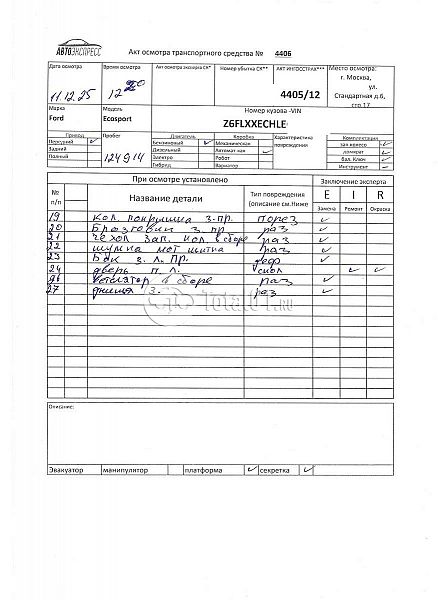 АВТОЭКСПРЕСС
Акт осмотра транспортного средства № 4406
Дата осмотра Время осмотра Акт осмотра эксперта СК* Номер убытка СК** АКТ ИНГОССТРАХ*** Место осмотра:
11.12.25 12 20 4405/12 г. Москва, ул. Стандартная д.6, стр.17
Марка Модель Номер кузова -VIN
Ford Ecosport Z6FLXXECHLE
Привод Пробег Двигатель Коробка Характеристика повреждения Комплектация
Передний Бензиновый Механическая зап.колесо
Задний Дизельный Автомат кая домкрат
Полный 124914 Электро Робот бал. Ключ
Гибрид Вариатор Инструмент
При осмотре установлено Заключение эксперта
№ п/п Название детали Тип повреждения (описание см.Ниже E I R
Замена Ремонт Окраска
19 Кол. покрышка з.пр. порез
20 Брызговик з. пр раз
21 чехол зап. кол. в сборе раз
22 раз
23 Бак з. л. пр. деф
24 дверь п. л.
26 в сборе раз
27 днища з. раз
Total01.ru
Описание:
Эвакуатор манипулятор платформа секретка